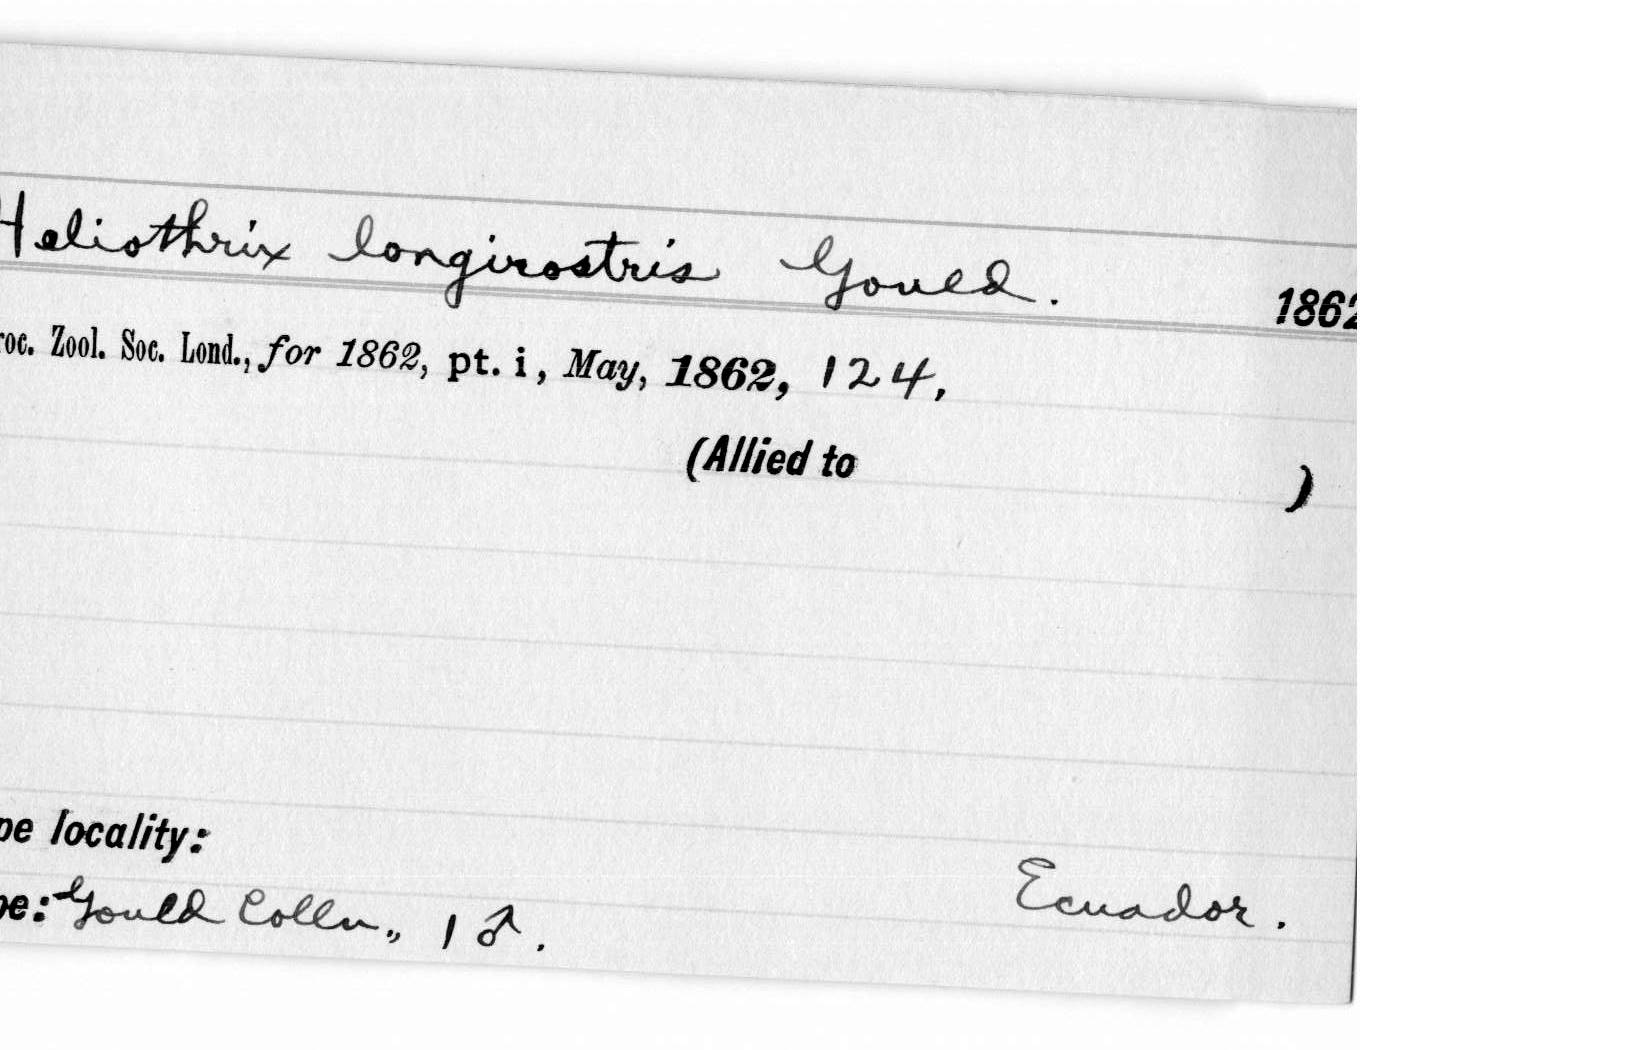 Heliothrix longirostris Gould. 1862
roc. Zool. Soc. Lond., for 1862, pt. i, May, 1862, 124,
(Allied to )
pe locality: Ecuador.
pe: Gould Colln., 1 ♂.